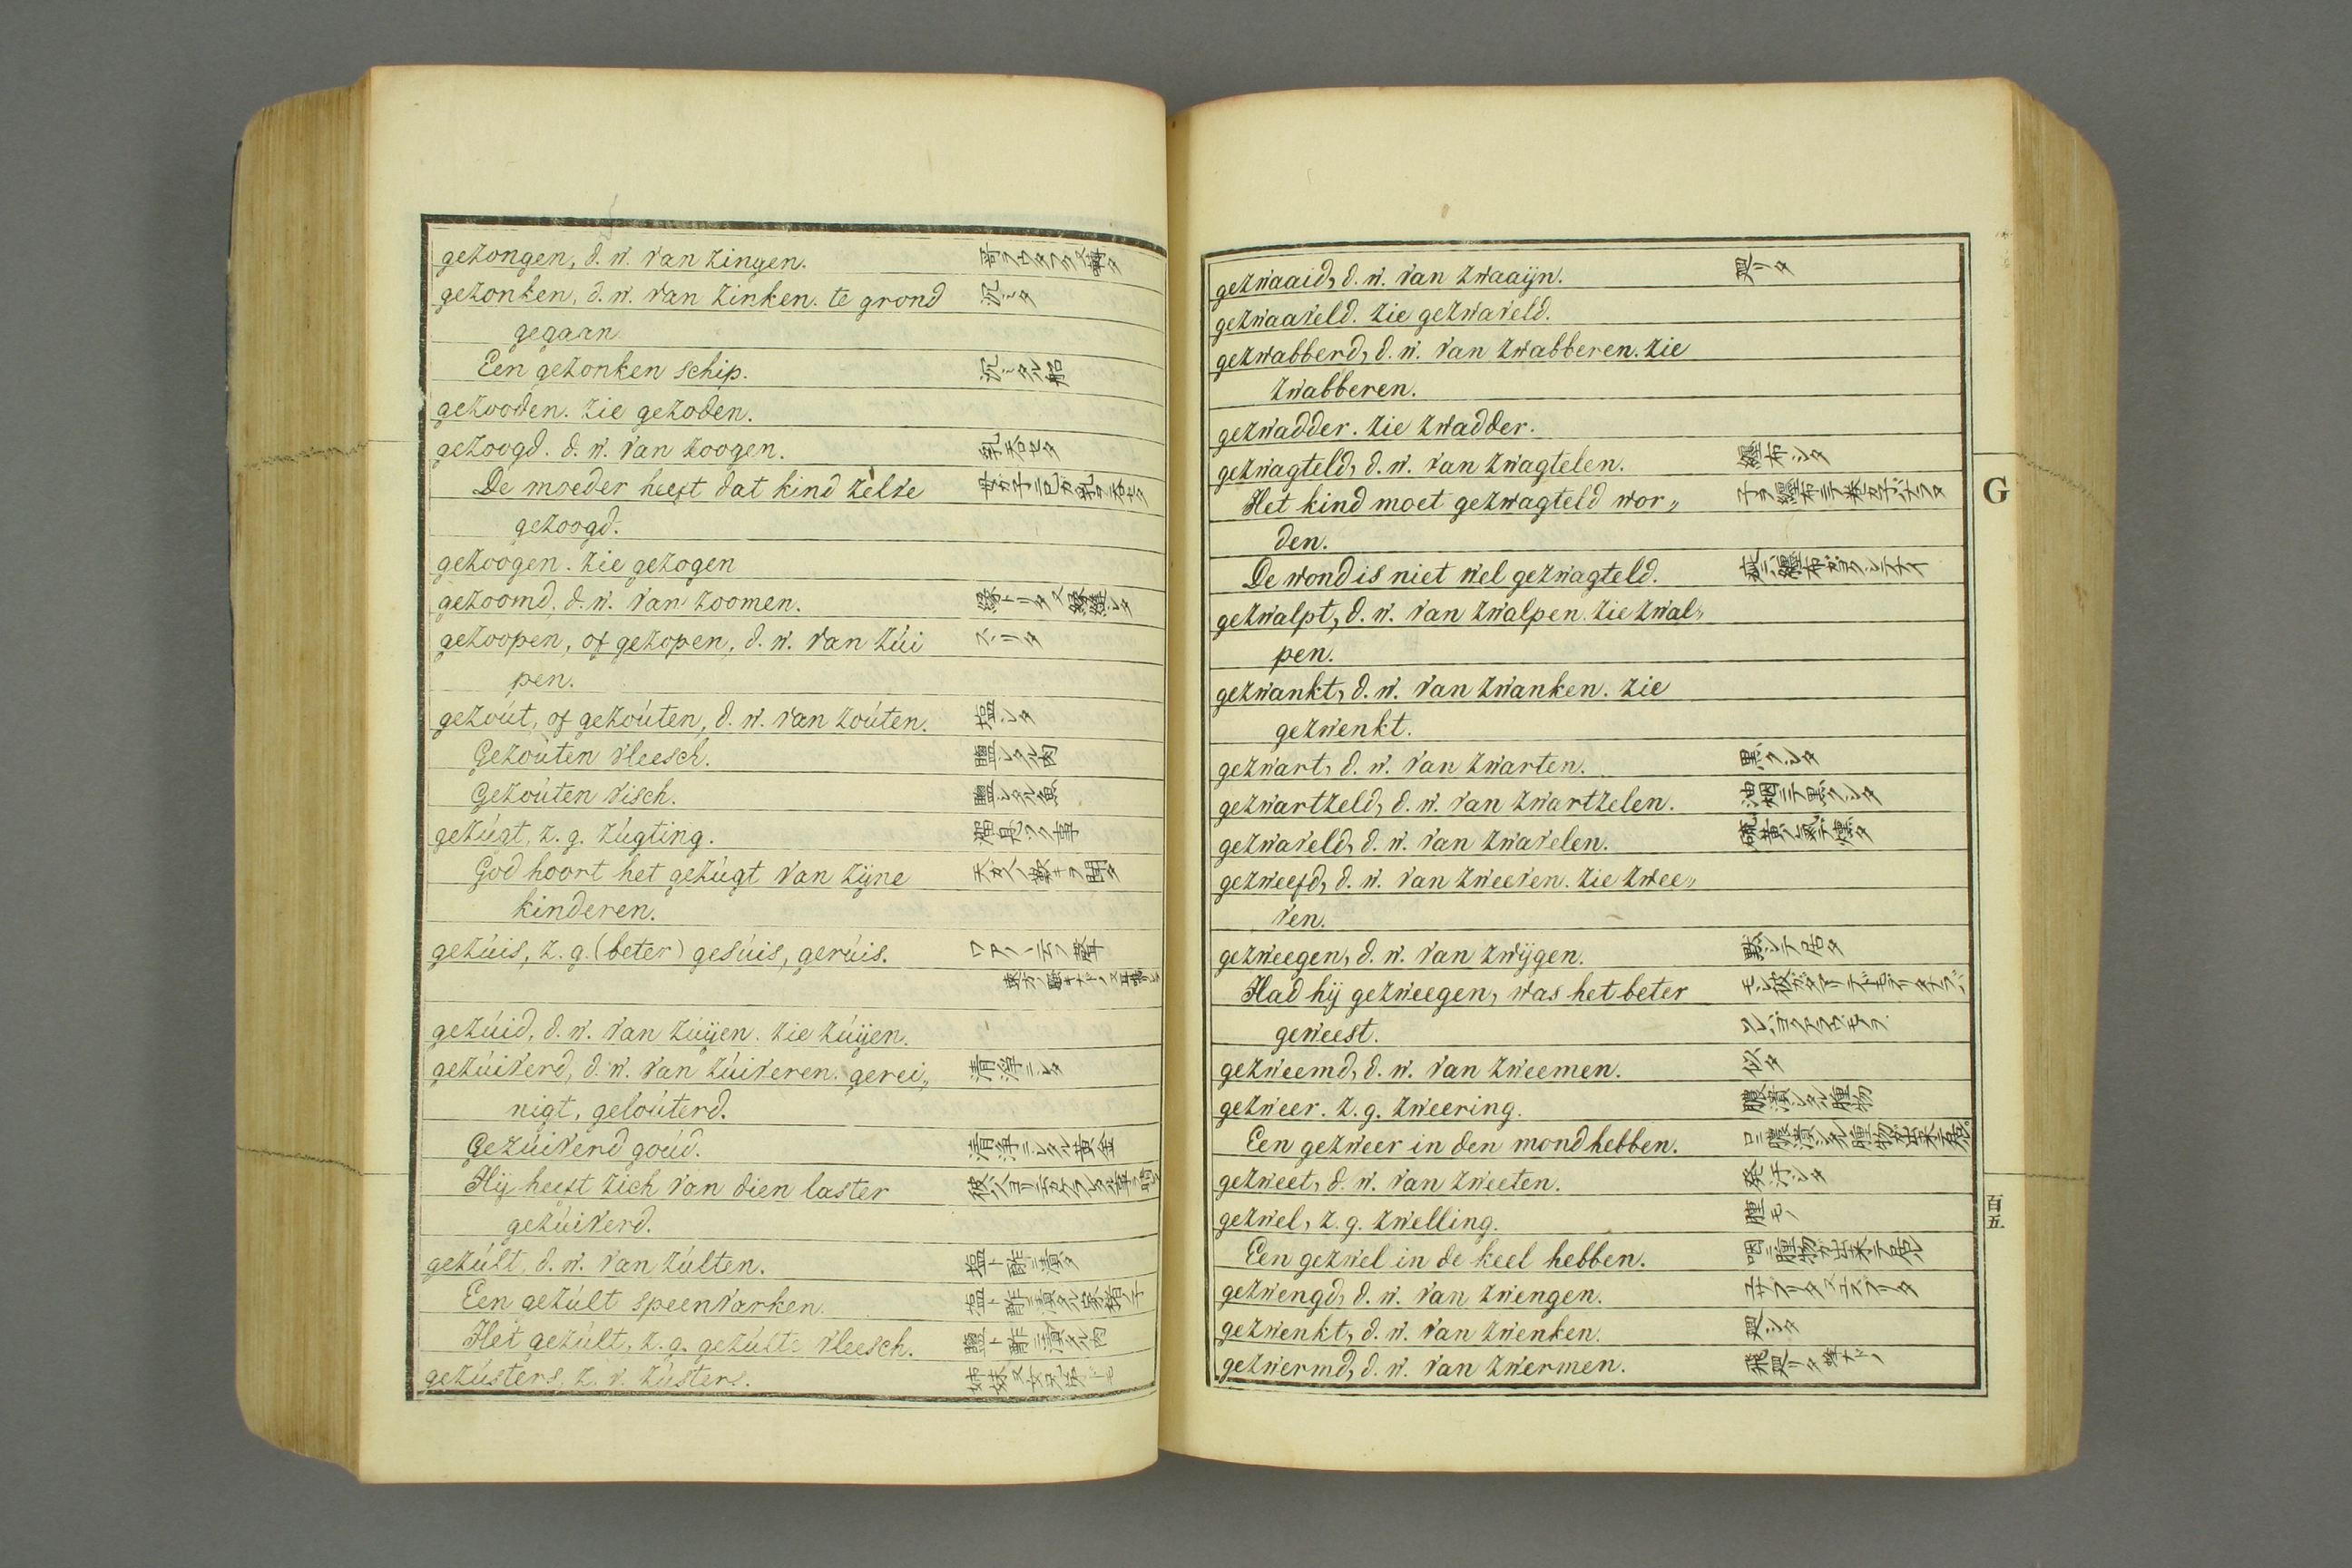 gezongen, d. w. van zingen.
gezonken, d. w. van zinken. te grond 沉ミタ
gegaan
Een gezonken schip. 沉ミタル船
gezooden. zie gezoden.
gezoogd. d. w. van zoogen. 乳呑セタ
De moeder heeft dat kind zèlve
gezoogd.
gezoogen. zie gezogen
gezoomd, d. w. van zoomen. 縁トリタ又縫シタ
gezoopen, of gezopen, d. w. van zúi スヽリタ
pen.
gezoút, of gezoúten, d. w. van zoúten. 塩シタ
Gezoúten vleesch. 鹽シタル肉
Gezoúten visch. 鹽シタル魚
gezúgt, z. g. zúgting. 溜息ツク事
God hoort het gezúgt van zijne
kinderen.
gezúis, z. g. (beter) gesúis, gerúis.
gezúid, d. w. van zúijen. zie zúijen.
gezúiverd, d. w. van zúiveren. gerei„ 清浄ニシタ
nigt, geloúterd.
Gezúiverd goúd. 清浄ニシタル黄金
Hij heeft zich van dien laster
gezúiverd.
gezúlt, d. w. van zúlten. 塩ト酢ニ漬タ
Een gezúlt speenvarken. 塩ト酢ニ漬タル家猪ノ子
Het gezúlt, z. g. gezúlts vleesch. 鹽ト酢ニ漬タル肉
gezústers, z. v. zústers.
gezwaaid, d. w. van zwaaijn. 廻リタ
gezwaaveld. zie gezwaveld.
gezwabberd, d. w. van zwabberen. zie
zwabberen.
gezwadder. zie zwadder.
gezwagteld, d. w. van zwagtelen. 纏布シタ
Het kind moet gezwagteld wor„
den.
De wond is niet wel gezwagteld.
gezwalpt, d. w. van zwalpen. zie zwal„
pen.
gezwankt, d. w. van zwanken. zie
gezwenkt.
gezwart, d. w. van zwarten. 黒クシタ
gezwartzeld, d. w. van zwartzelen. 油烟ニテ黒クシタ
gezwaveld, d. w. van zwavelen. 硫黄ノ氣ニテ燻タ
gezweefd, d. w. van zweeven. zie zwee„
ven.
gezweegen, d. w. van zwijgen. 黙シテ居タ
Had hij gezweegen, was het beter
geweest.
gezweemd, d. w. van zweemen. 似タ
gezweer. z. g. zweering. 膿潰シタル腫物
Een gezweer in den mond hebben. 口ニ膿潰シタル腫物ガ出来テ居ル
gezweet, d. w. van zweeten. 発汗シタ
gezwel, z. g. zwelling. 腫モノ
Een gezwel in de keel hebben. 咽ニ腫物ガ出来テ居ル
gezwengd, d. w. van zwengen.
gezwenkt, d. w. van zwenken. 廻シタ
gezwermd, d. w. van zwermen. 飛廻リタ蜂ナドノ
G
百五